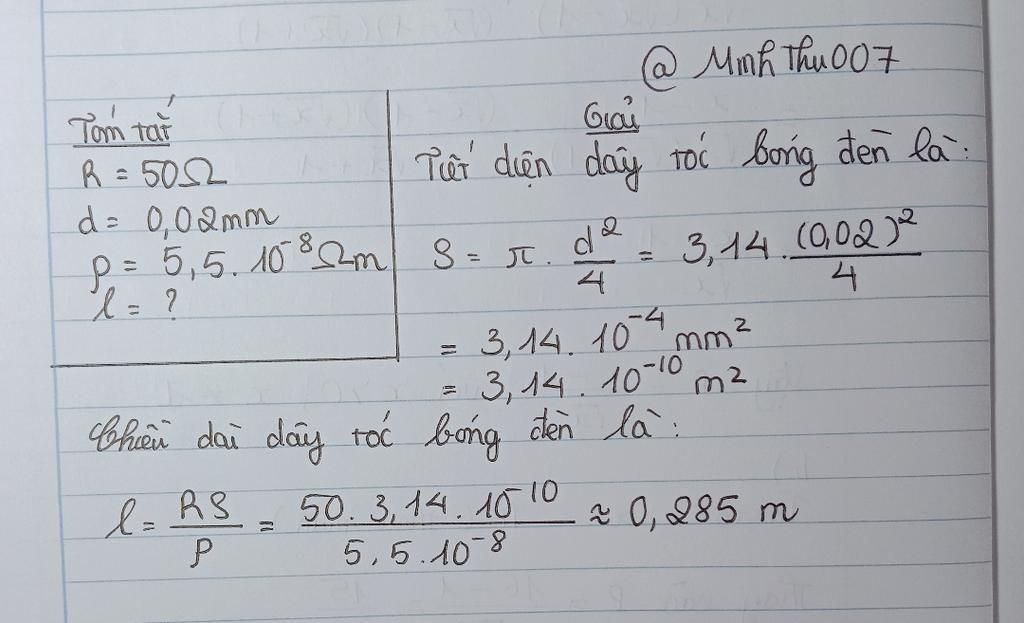 @ MinhThu007
Tóm tắt
R = 50Ω
d = 0,02mm
ρ = 5,5.10⁻⁸Ωm
l = ?
Giải
Tiết diện dây tóc bóng đèn là:
S = π . d²/4 = 3,14 . (0,02)²/4
= 3,14 . 10⁻⁴ mm²
= 3,14 . 10⁻¹⁰ m²
Chiều dài dây tóc bóng đèn là:
l = RS/ρ = 50 . 3,14 . 10⁻¹⁰/5,5 . 10⁻⁸ ≈ 0,285 m